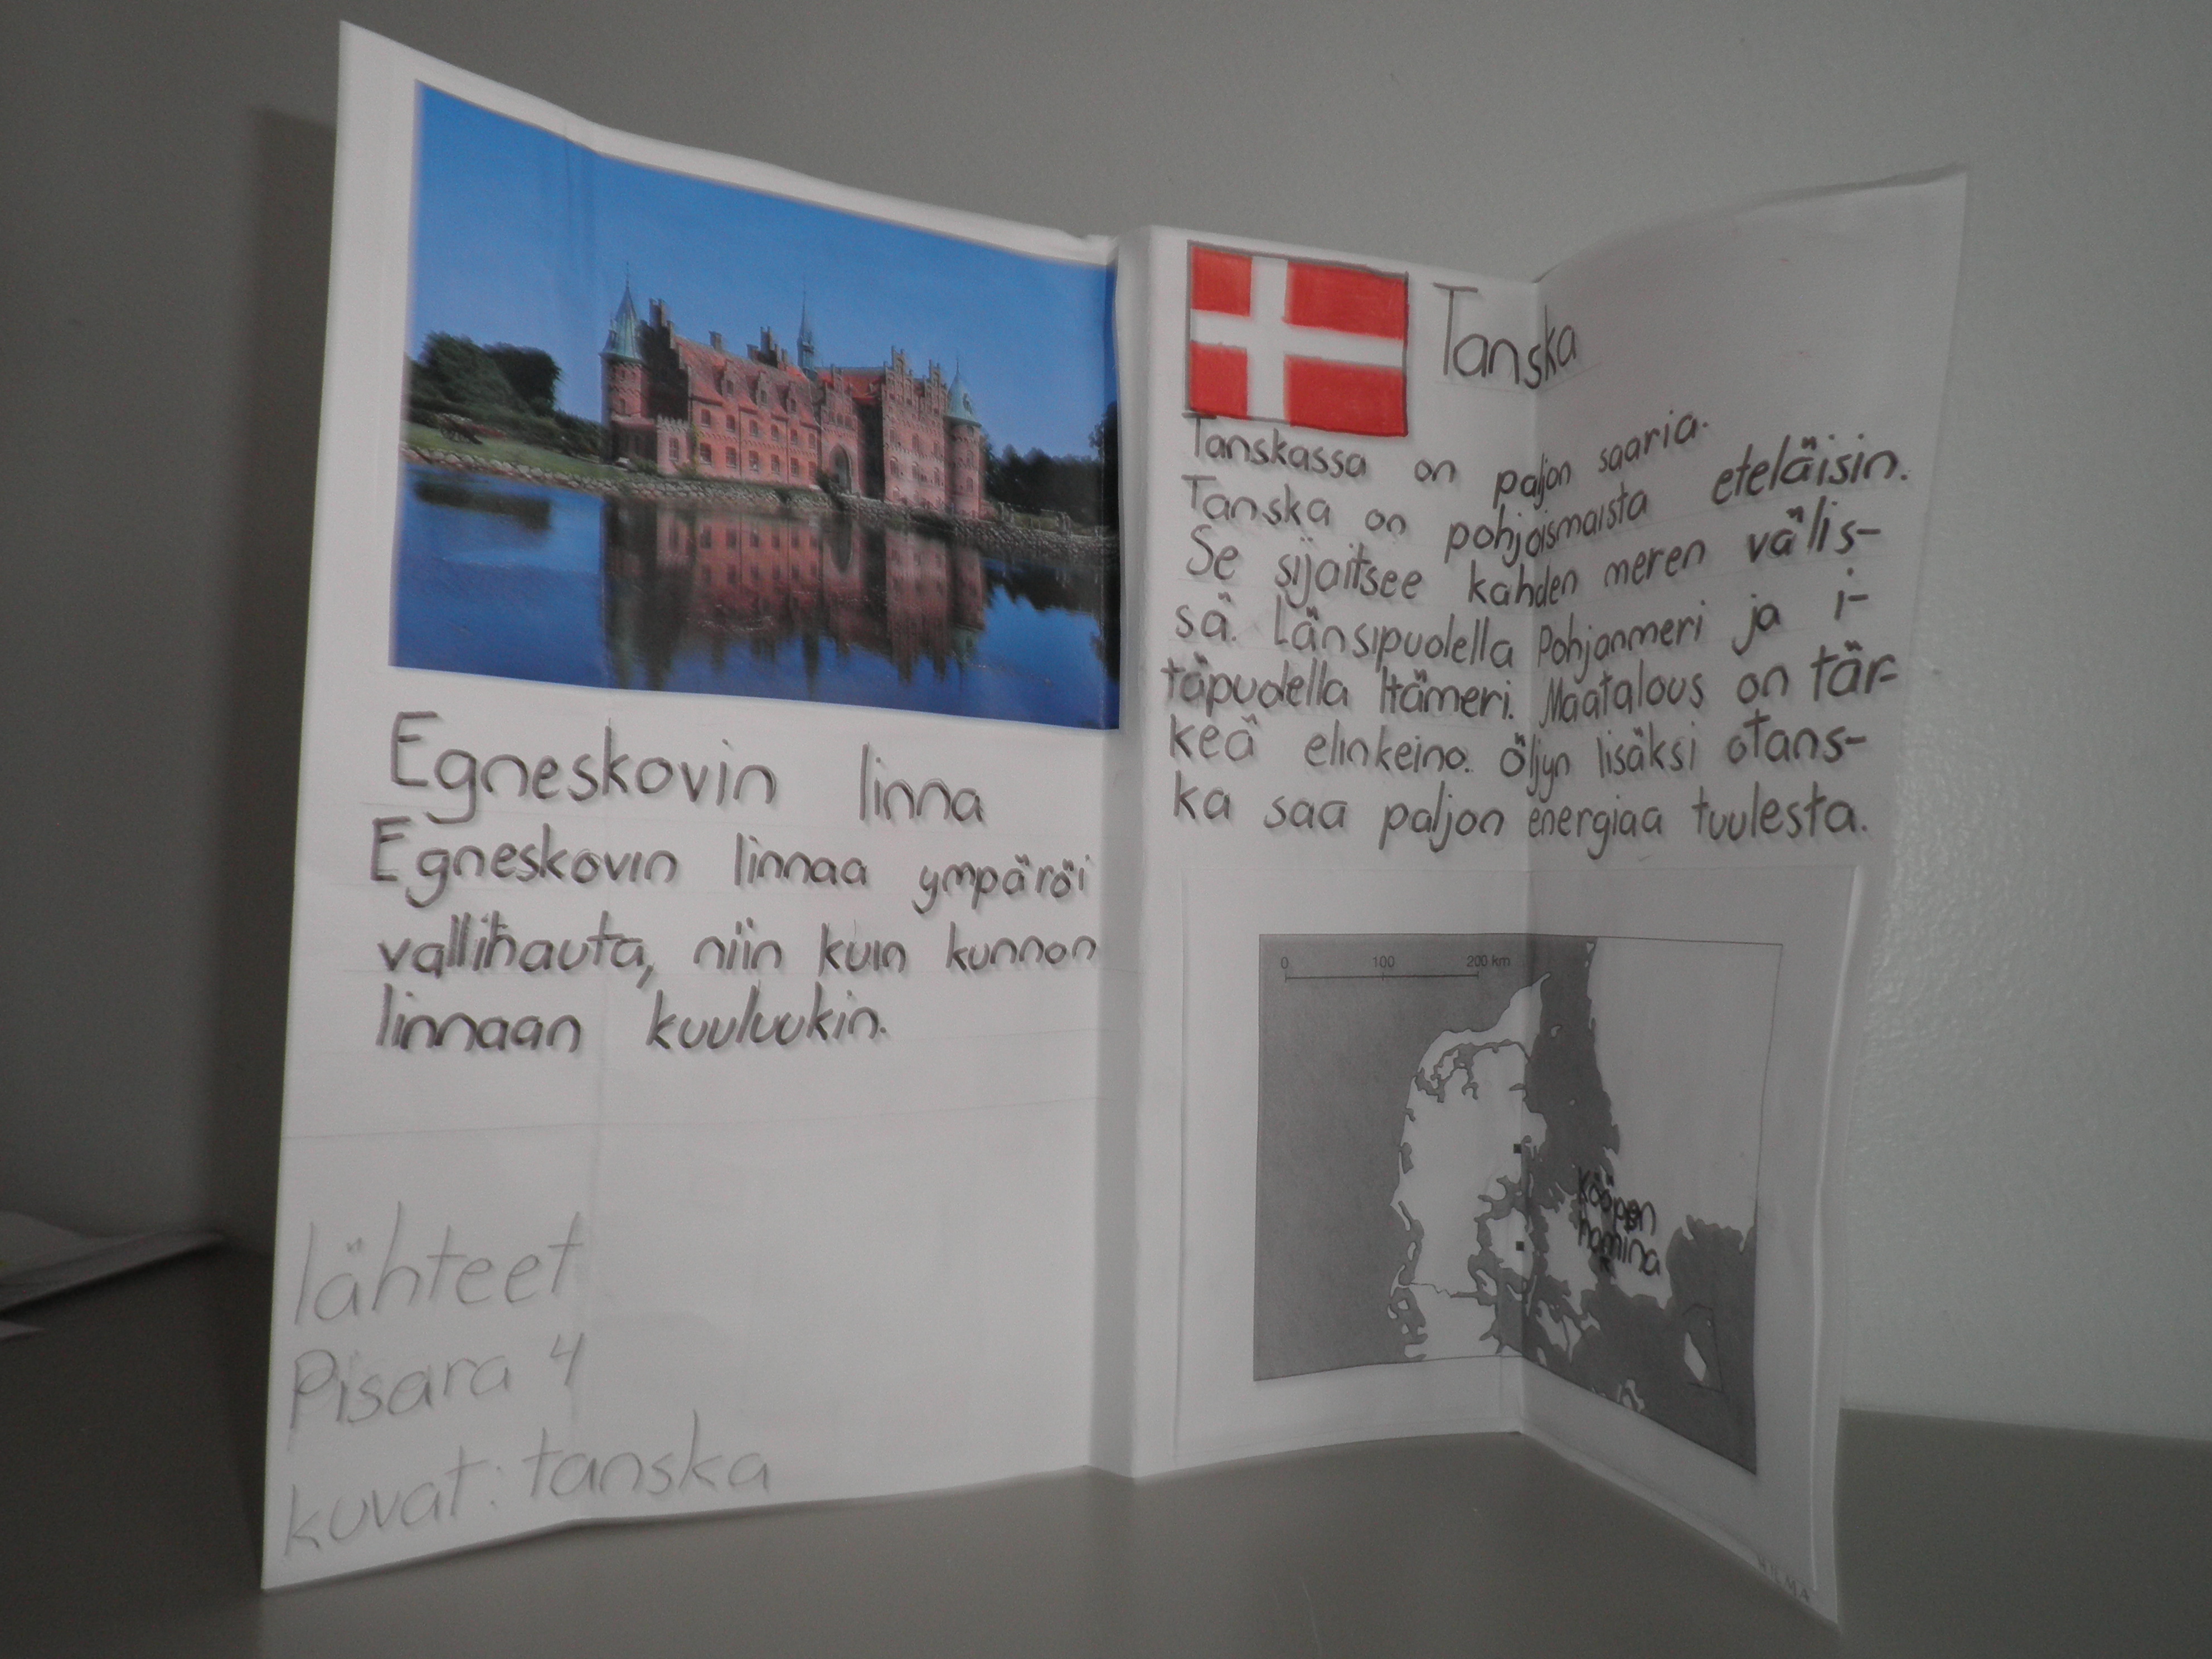 Egneskovin linna
Egneskovin linnaa ympäröi
vallihauta, niin kuin kunnon
linnaan kuuluukin.
lähteet
Pisara 4
kuvat: tanska
Tanska
Tanskassa on paljon saaria.
Tanska on pohjoismaista eteläisin.
Se sijaitsee kahden meren välis-
sä. Länsipuolella Pohjanmeri ja i-
täpuolella Itämeri. Maatalous on tär-
keä elinkeino. Öljyn lisäksi otans-
ka saa paljon energiaa tuulesta.
0 100 200 km
Kööpen
hamina